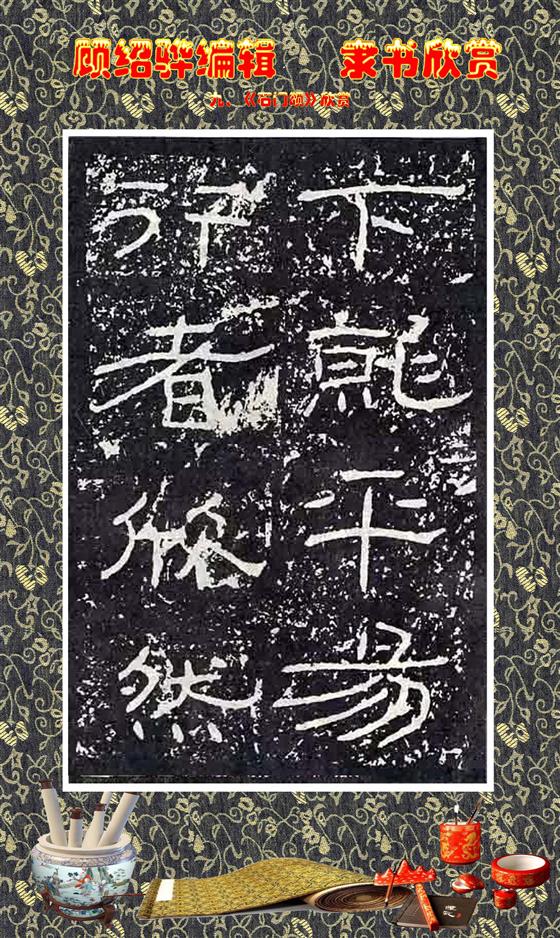 顾绍骅编辑 隶书欣赏
九、《石门颂》欣赏
下就平易
行者欣然